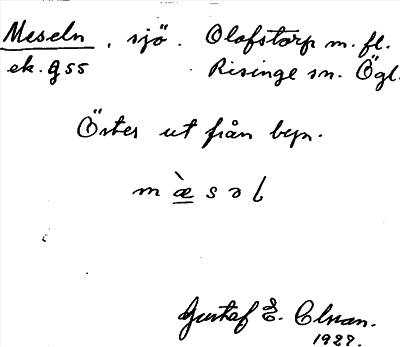 Meseln, sjö. Olofstorp m. fl.
ek. G 55 Risinge sn. Ögl.
Öster ut från byn.
m æ̀ s ə l
Gustaf E. Olsson.
1927.